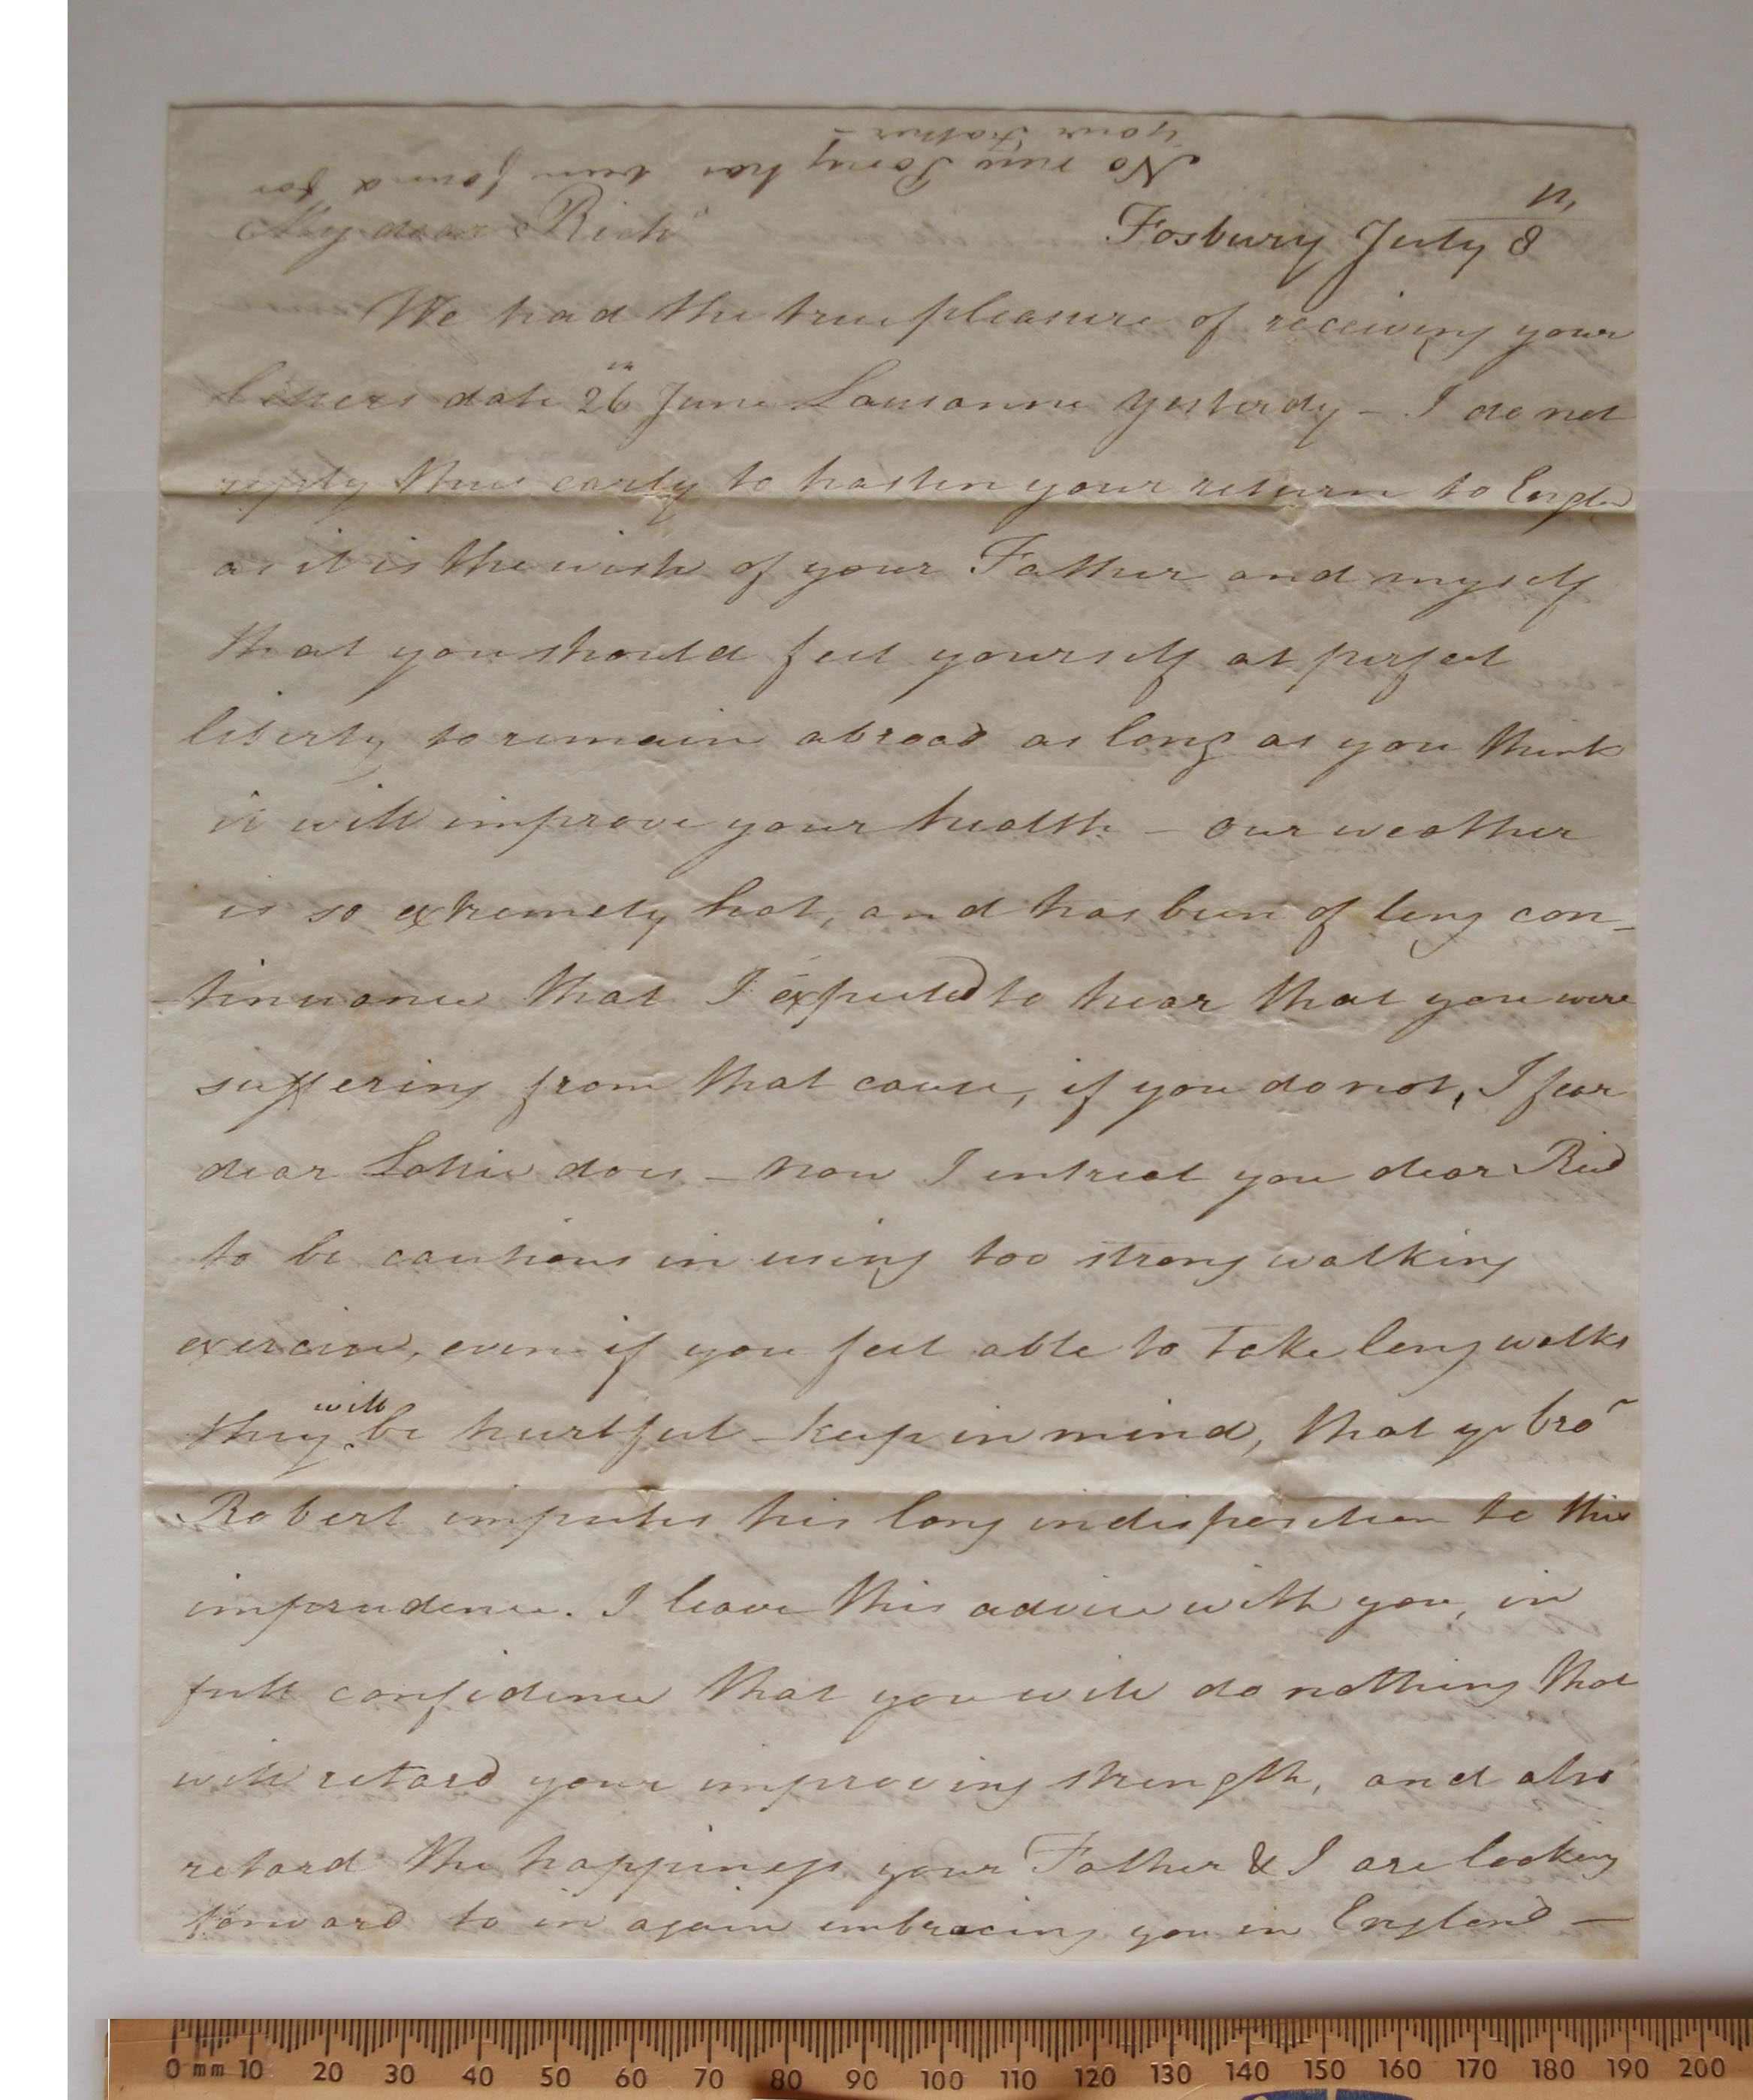 No new Pony has been found for
your Father -
My dear Richd
Fosbury July 8th
We had the true pleasure of receiving your
letters date 26th June Lausanne yesterdy - I do not
reply thus early to hasten your return to Engld
as it is the wish of your Father and myself
that you should feel yourself at perfect
liberty to remain abroad as long as you think
it will improve your health - our weather
is so extremely hot, and has been of long con-
-tinuance that I expected to hear that you were
suffering from that cause, if you do not, I fear
dear does - now I intreat you dear Ricd
to be cautious in using too strong walking
exercise, even if you feel able to take long walks
they will be hurtful - keep in mind, that yr bror
Robert imputes his long indisposition to this
imprudence. I leave this advice with you, in
full confidence that you will do nothing that
will retard your improving strength, and also
retard the happiness your Father & I are looking
forward to in again embracing you in England -
0 mm 10 20 30 40 50 60 70 80 90 100 110 120 130 140 150 160 170 180 190 200